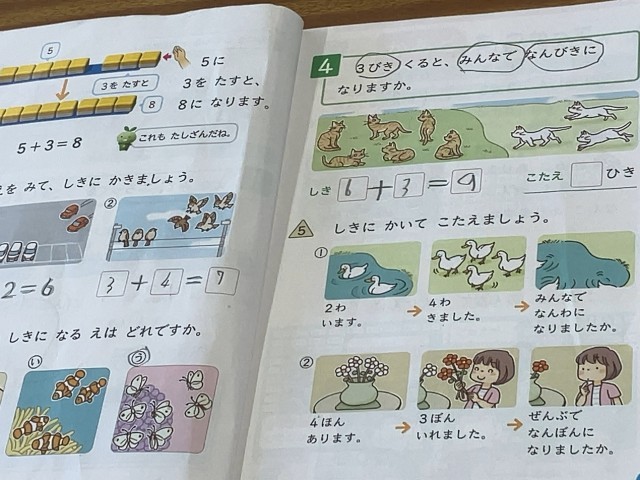 5
5に
3を たすと
3を たすと、
8
8に なります。
5+3=8
これも たしざんだね。
みて、しきに かきましょう。
②
2=6
3+4=7
しきに なる えは どれですか。
い
う
4
3びき くると、みんなで なんびきに
なりますか。
しき 6+3=9
こたえ ひき
5 しきに かいて こたえましょう。
①
2わ
います。
4わ
きました。
みんなで
なんわに
なりましたか。
②
4ほん
あります。
3ぼん
いれました。
ぜんぶで
なんぼんに
なりましたか。